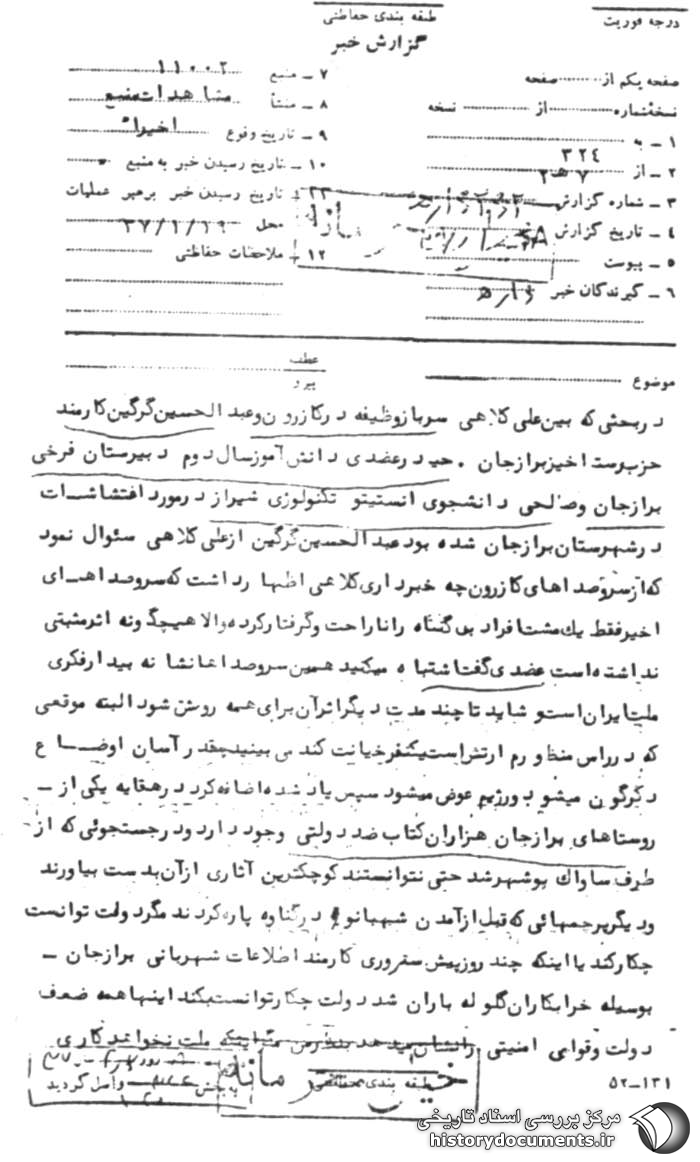 درجه فوریت
طبقه بندی حفاظتی
گزارش خبر
صفحه یکم از صفحه
نسخه شماره از نسخه
۱ ـ به
۲ ـ از ۳۲۴
۳ ـ شماره گزارش
۴ ـ تاریخ گزارش
۵ ـ پیوست
۶ ـ گیرندگان خبر
۷ ـ منبع ۱۱۰۰۲
۸ ـ منشأ مشاهدات منبع
۹ ـ تاریخ وقوع اخیرا"
۱۰ ـ تاریخ رسیدن خبر به منبع
تاریخ رسیدن خبر برهبر عملیات
محل ۳۷/۱/۱۹
۱۲ ـ ملاحظات حفاظتی
موضوع
عطف
پیرو
در بحثی که بین علی کلاهی سرباز وظیفه در کازرون و عبدالحسین گرگین کارمند
حزب رستاخیز برازجان . حیدر عضدی دانش آموز سال دوم دبیرستان فرخی
برازجان و صالحی دانشجوی انستیتو تکنولوژی شیراز در مورد اغتشاشات
در شهرستان برازجان شده بود عبدالحسین گرگین از علی کلاهی سئوال نمود
که از سروصداهای کازرون چه خبر داری کلاهی اظهار داشت که سروصداهای
اخیر فقط یک مشت افراد بی گناه را ناراحت و گرفتار کرده والا هیچگونه اثر مثبتی
نداشته است عضدی گفت اشتباه میکنید همین سروصداها نشانه بیدار فکری
ملت ایران است و شاید تا چند مدت دیگر اثر آن برای همه روشن شود البته موقعی
که در راس منظورم ارتش است یکنفر خیانت کند می بینید چقدر آسان اوضاع
دگرگون میشود و رژیم عوض میشود سپس یاد شده اضافه کرد در دهقایه یکی از ـ
روستاهای برازجان هزاران کتاب ضد دولتی وجود دارد و در جستجوئی که از
طرف ساواک بوشهر شد حتی نتوانستند کوچکترین آثاری از آن بدست بیاورند
و دیگر پرچمهائی که قبل از آمدن شهبانو در گناوه پاره کردند مگر دولت توانست
چکار کند یا اینکه چند روز پیش سفروری کارمند اطلاعات شهربانی برازجان ـ
بوسیله خرابکاران گلوله باران شد دولت چکار توانست بکند اینها همه ضعف
دولت و قوای امنیتی را نشان میدهد بنظر من ملت نخواهند کاری
طبقه بندی حفاظتی
واصل گردید
۵۲ـ۱۳۱
مرکز بررسی اسناد تاریخی
historydocuments.ir